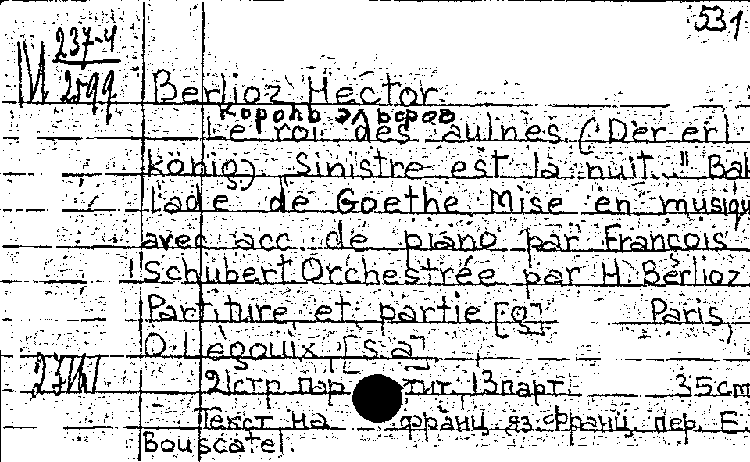 531
М 237-4
2599
Berlioz Hector
Король эльфов
Le roi des aulnes (Der erl
könig) Sinistre est la nuit.." Bal
lade de Goethe Mise en musiqu
avec acc de piano par François
Schubert Orchestrée par H. Berlioz
Partiture et partie [g] Paris,
O. Legouix [s.a]
21стр пар тит. 13парт. 35cm
Текст на франц яз. франц. пер. E.
Bouscatel.